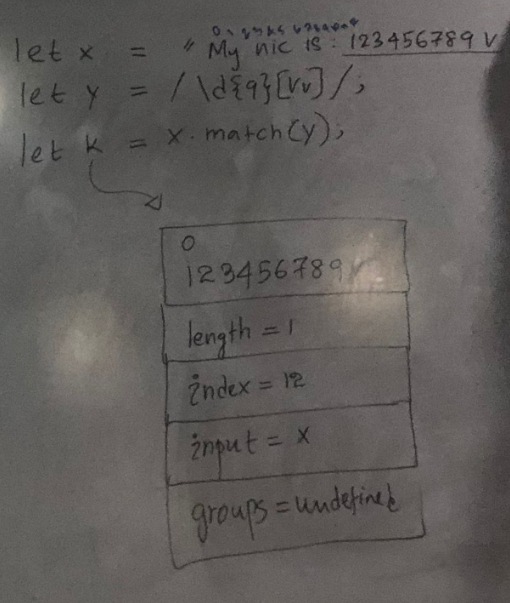 let x = " My nic is : 123456789 V
let y = / \d{9}[Vv] /;
let k = x.match(y);
0
123456789V
length = 1
index = 12
input = x
groups = undefined